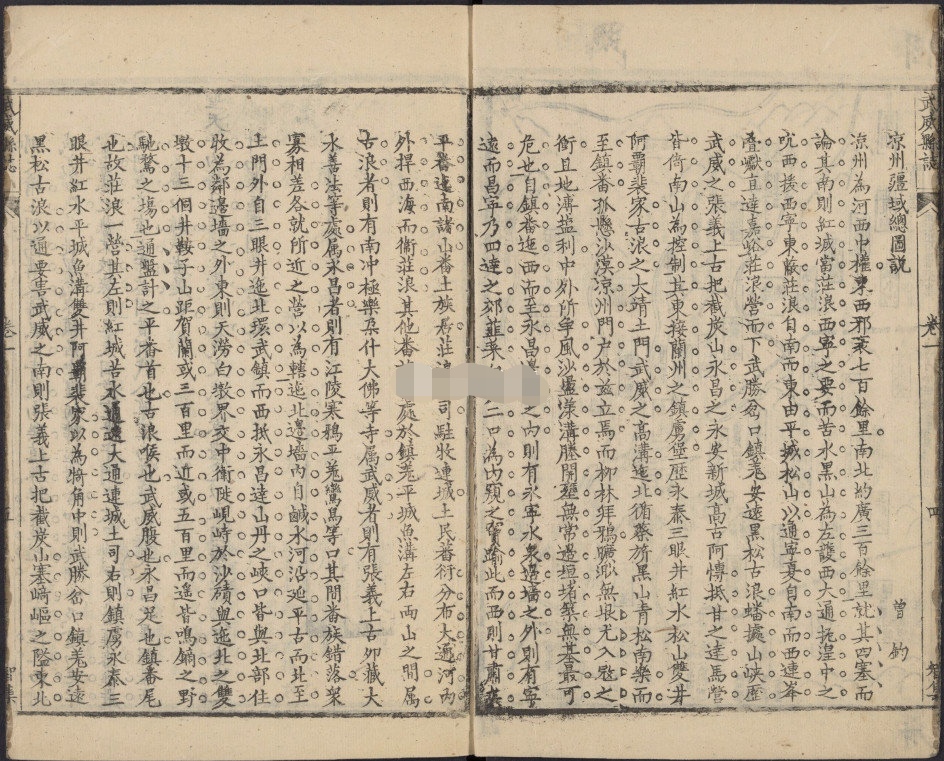 武威縣誌 卷一 四 智集
涼州疆域總圖說
曾鈞
涼州為河西中權東西邪袤七百餘里南北約廣三百餘里就其四塞而
論其南則紅城當莊浪西寧之要而苦水黑山為左臂西大通扼湟中之
吭西援西寧東蔽莊浪自南而東由平城松山以通寧夏自南而西連峯
疊巘直達嘉峪莊浪營而下武勝岔口鎮羌安遠黑松古浪蟠據山峽歷
武威之張義上古把截炭山永昌之永安新城高古阿愽抵甘之達馬營
皆倚南山為控制其東接蘭州之鎮虜堡歷永泰三眼井紅水松山雙井
阿霸裴家古浪之大靖土門武威之高溝迤北循蔡旂黑山青松南樂而
至鎮番孤懸沙漠涼州門戶於茲立焉而柳林年鴉曠眇無垠尤入寇之
衝且地薄鹽利中外所爭風沙壅深溝塍開壅無常邊垣堵築無基最可
危也自鎮番迤西而至永昌之內則有永寧水泉邊墻之外則有寧
遠而昌寧乃四達之郊韮菜二口為內頰之寶踰此而西則甘肅矣
平番迤南諸山番土族為莊司駐牧連城土民蕃衍分布大通河內
外捍西海而衛莊浪其他番處於鎮羌平城魚溝左右兩山之間屬
古浪者則有南冲極樂朶什大佛等寺屬武威者則有張義上古夘藏大
水善法等處屬永昌者則有江陵寒鴉平羗鸞鳥等口其間番族錯落眾
寡相差各就所近之營以為轄迤北邊墻內自鹹水河沿延平古而北至
土門外自三眼井迤北環武鎮而西抵永昌達山丹之峽口皆與北部住
牧為鄰邊墻之外東則天澇白墩界交中衛陡峴峙於沙磧與迤北之雙
墩十三個井鞍子山距賀蘭或三百里而近或五百里而遙皆鳴鏑之野
馳騖之塲也通盤計之平番首也古浪喉也武威腹也永昌足也鎮番尾
也故莊浪一營其左則紅城苦水通遠大通連城土司右則鎮虜永泰三
眼井紅水平城魚溝雙井阿霸裴家以為犄角中則武勝岔口鎮羌安遠
黑松古浪以通要害武威之南則張義上古把截炭山塞崎嶇之隘東北
武威縣誌 卷一 五 智集